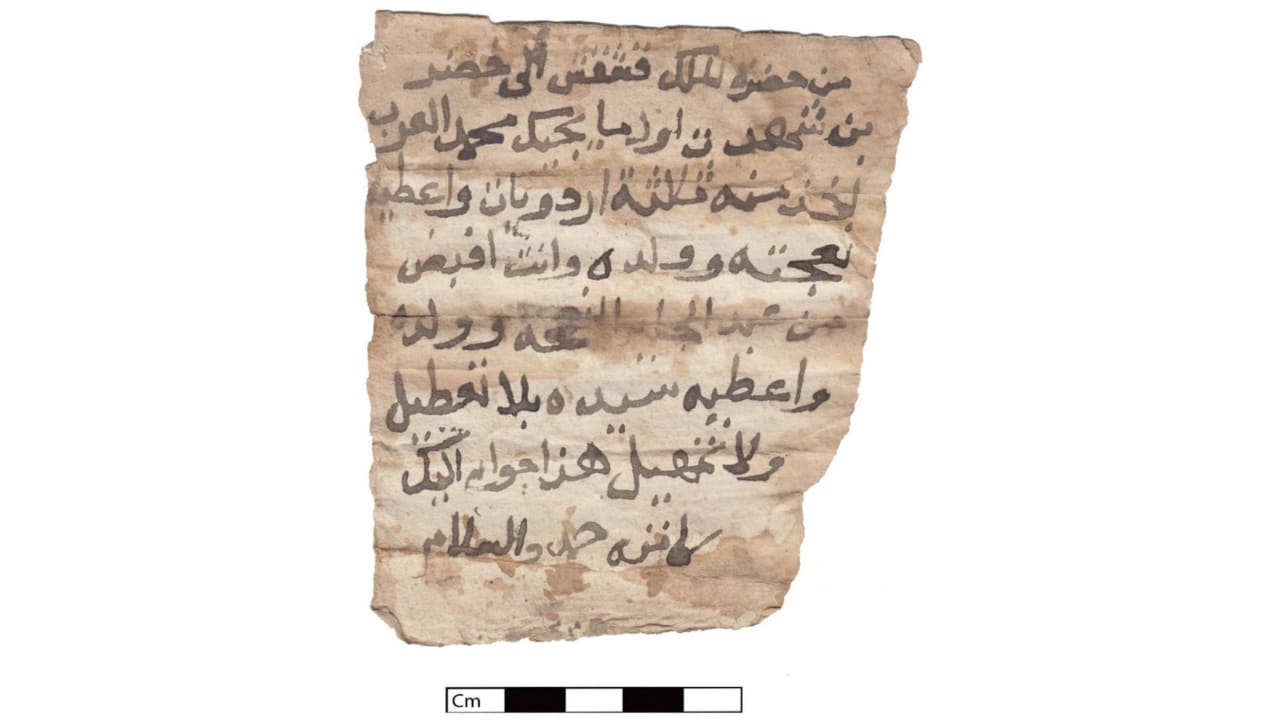 من حضرة الملك قشقش الى خضر
بن شهدت اول ما يجيك محمد العرب
تخذ منه ثلاثة اردويات واعطيه
نعجته وولده وانت اقبض
من عبد الجابر النعجه وولده
واعطيه سيده بلا تعطيل
ولا تمهيل هذا جواب اليك
كاتبه حمد والسلام
Cm